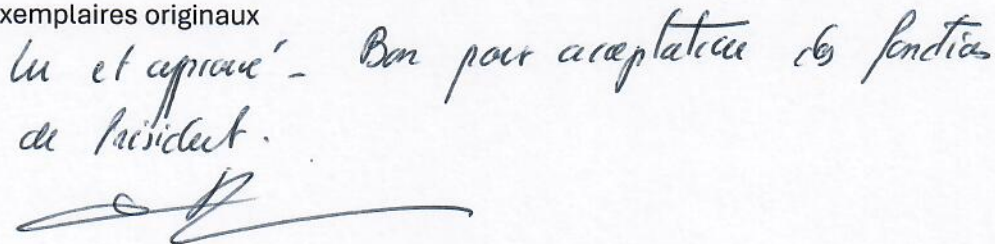 xemplaires originaux
Lu et approuvé - Bon pour acceptation des fonctions
de Président.